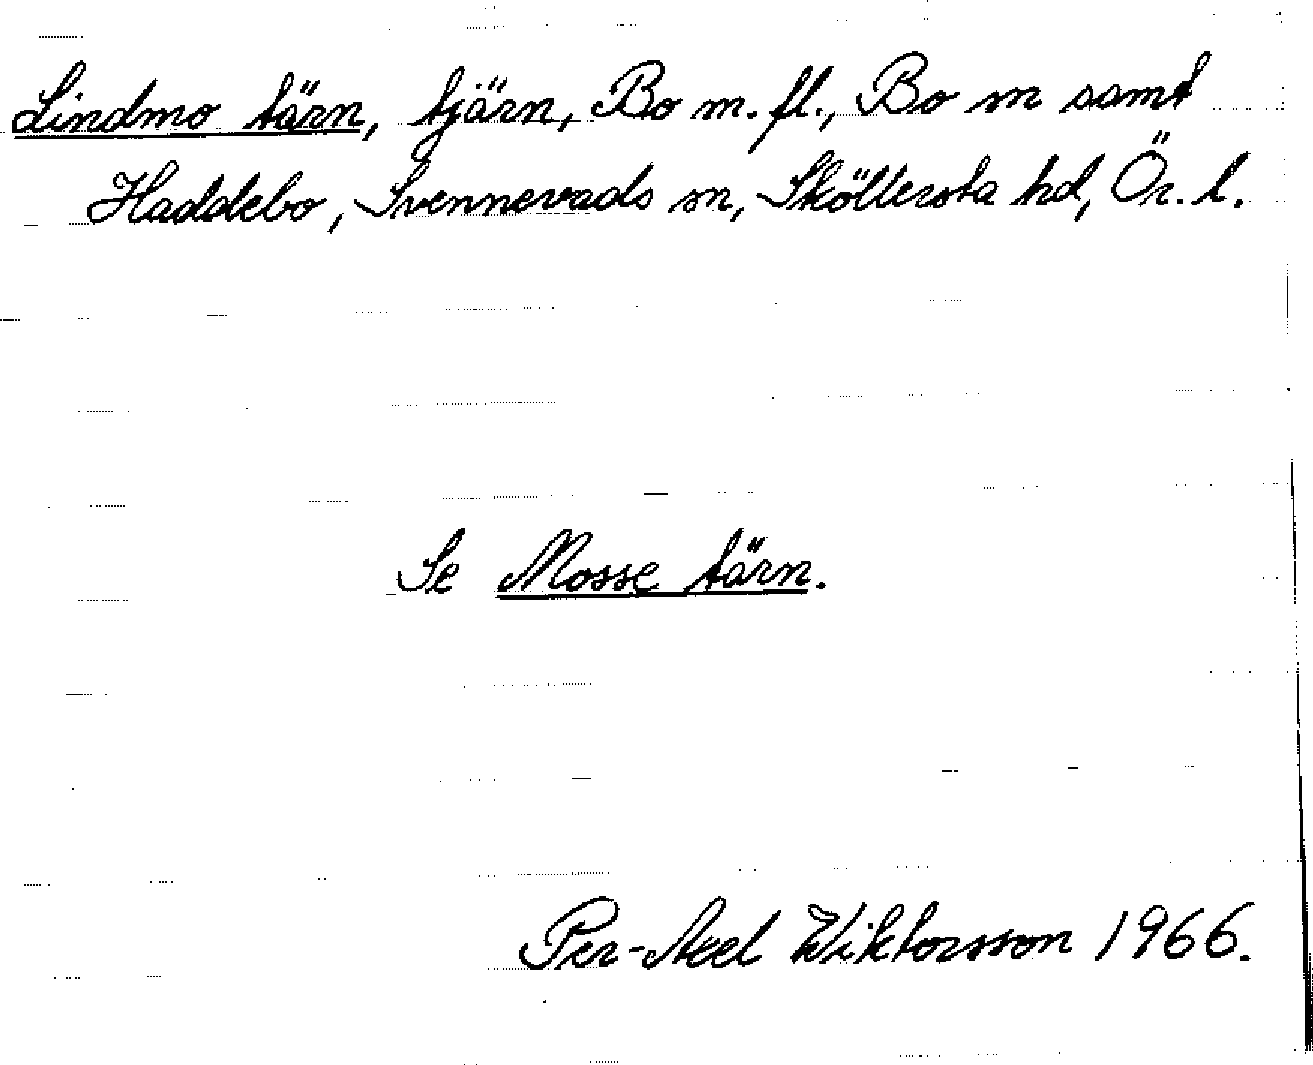 Lindmo tärn, tjärn, Bo m.fl., Bo sn samt
Haddebo, Svennevads sn, Sköllersta hd, Ör. l.
Se Mosse tärn.
Per-Axel Wiktorsson 1966.